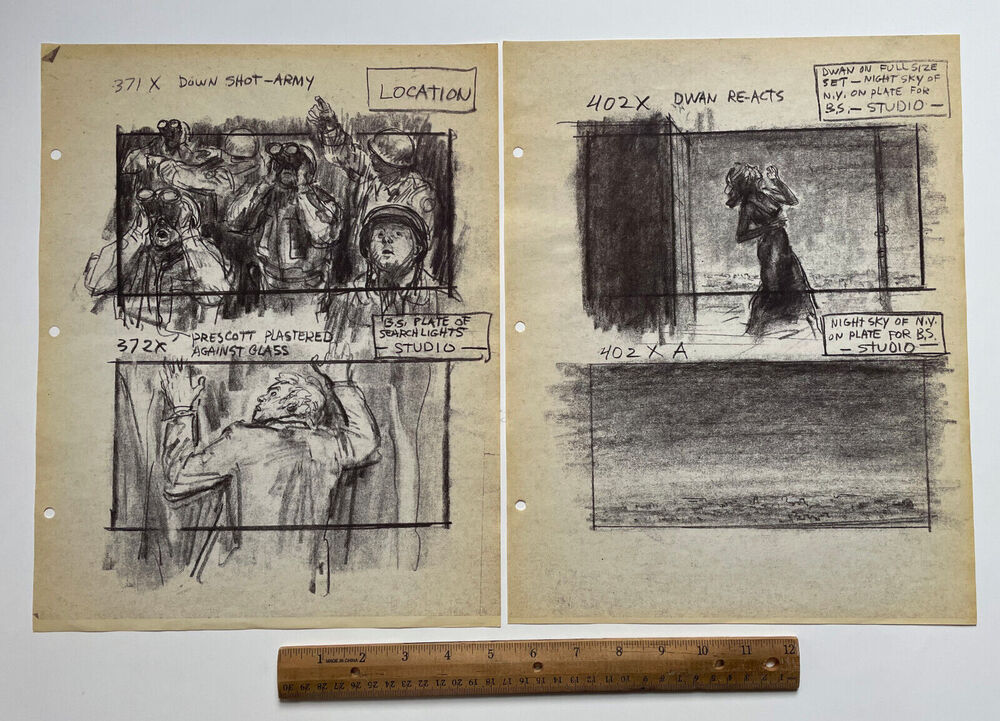 371 X DOWN SHOT-ARMY
LOCATION
372X PRESCOTT PLASTERED
AGAINST GLASS
B.S. PLATE OF
SEARCHLIGHTS
- STUDIO -
402X DWAN RE-ACTS
DWAN ON FULL SIZE
SET - NIGHT SKY OF
N.Y. ON PLATE FOR
B.S. - STUDIO -
402 X A
NIGHT SKY OF N.Y.
ON PLATE FOR B.S.
- STUDIO -
1 2 3 4 5 6 7 8 9 10 11 12
MADE IN CHINA
30 29 28 27 26 25 24 23 22 21 20 19 18 17 16 15 14 13 12 11 10 9 8 7 6 5 4 3 2 1